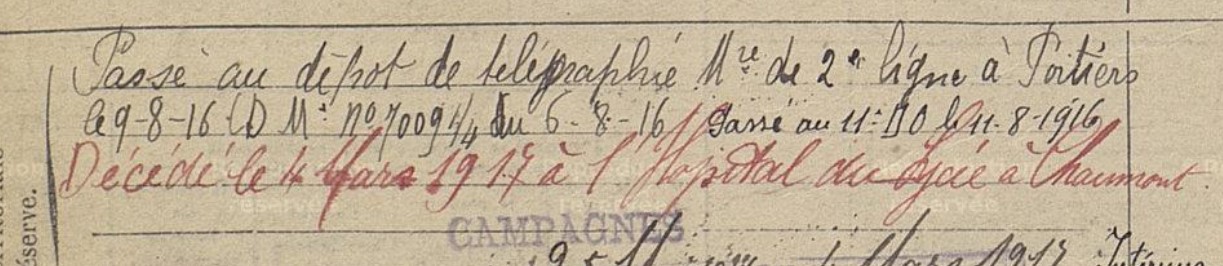 Passé au dépot de télégraphie Mre de 2e ligne à Poitiers
le 9-8-16 (D Mle no 70091/4 du 6-8-16) Passé au 11e le 11-8-1916
Décédé le 4 Mars 1917 à l'Hopital du Lycée à Chaumont
CAMPAGNES
Mars 1917 Intérieur
réserve.